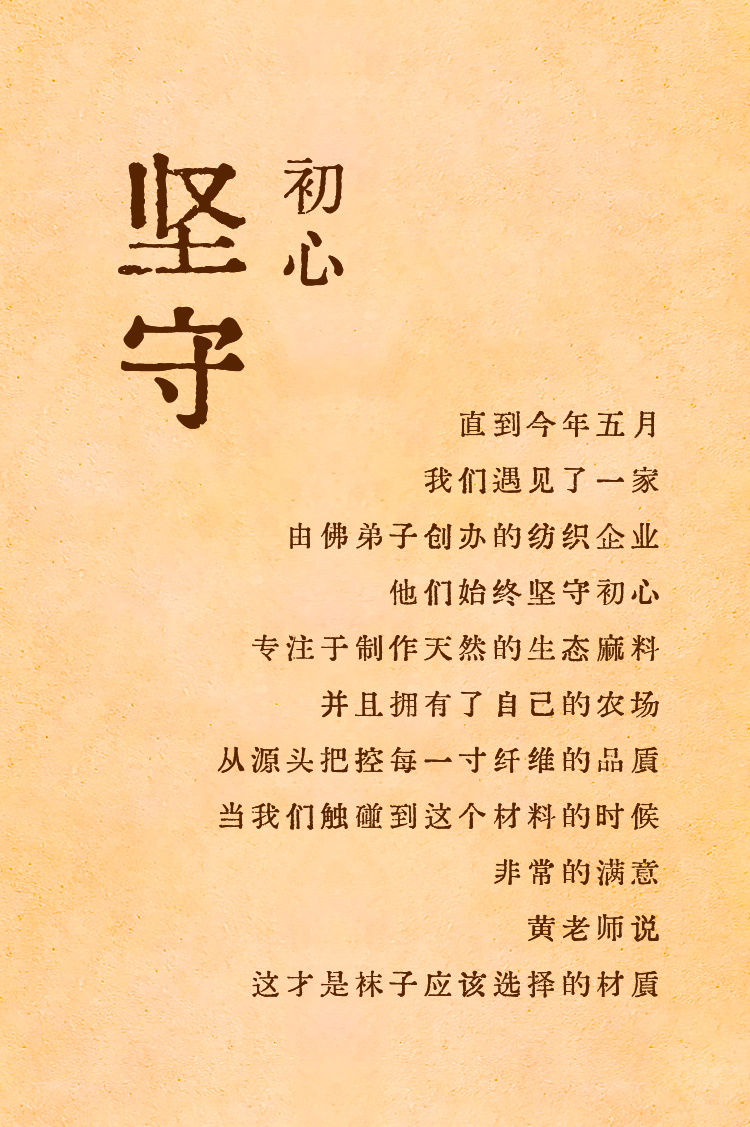 坚守
初心
直到今年五月
我们遇见了一家
由佛弟子创办的纺织企业
他们始终坚守初心
专注于制作天然的生态麻料
并且拥有了自己的农场
从源头把控每一寸纤维的品質
当我们触碰到这个材料的时候
非常的满意
黄老师说
这才是袜子应该选择的材質